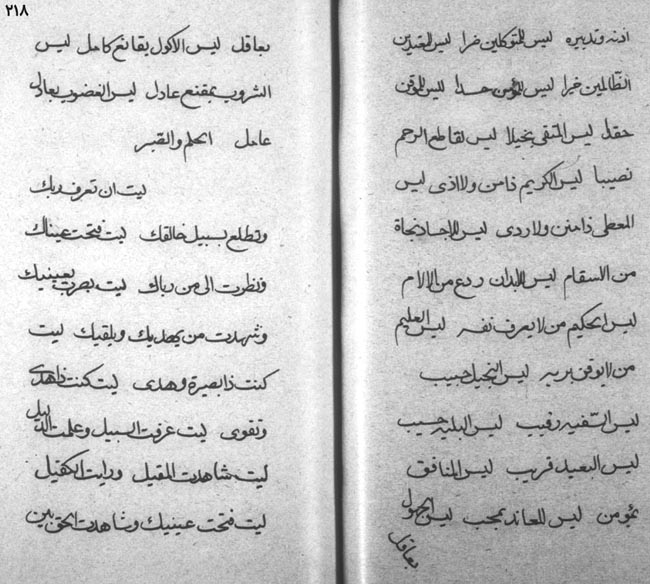 ادنه وتدبيره ليس للمتوكلين ضرا ليس للمعتدين
الظالمين خيرا ليس للمؤمن حدا ليس للموقن
حقدا ليس المتقى بخيلا ليس لقاطع الرحم
نصيبا ليس الكريم ذا من ولا اذى ليس
المعطى ذا منن ولا ردى ليس للاجساد نجاة
من الاسقام ليس للابدان ردع من الالام
ليس الحكيم من لا يعرف نفسه ليس العليم
من لا يوقن بربه ليس البخيل حبيب
ليس السفيه رقيب ليس البليه حسيب
ليس البعيد قريب ليس المنافق
بمؤمن ليس المعاند بمجب ليس الجهول
بعاقل
٢١٨
بعاقل ليس الاكول بقانع كامل ليس
الشروب بمقنع عادل ليس الغضوب بعادل
عامل الحلم والقبر
ليت ان تعرف ربك
وتطلع بسبيل خالقك ليت فتحت عيناك
ونظرت الى من رباك ليت بصرت بعينيك
وشهدت من يهديك ويلقيك ليت
كنت ذا بصيرة وهدى ليت كنت ذا هدى
وتقوى ليت عرفت السبيل وعلمت الدليل
ليت شاهدت المقيل ورايت الكفيل
ليت فتحت عينيك وشاهدت الحق بين